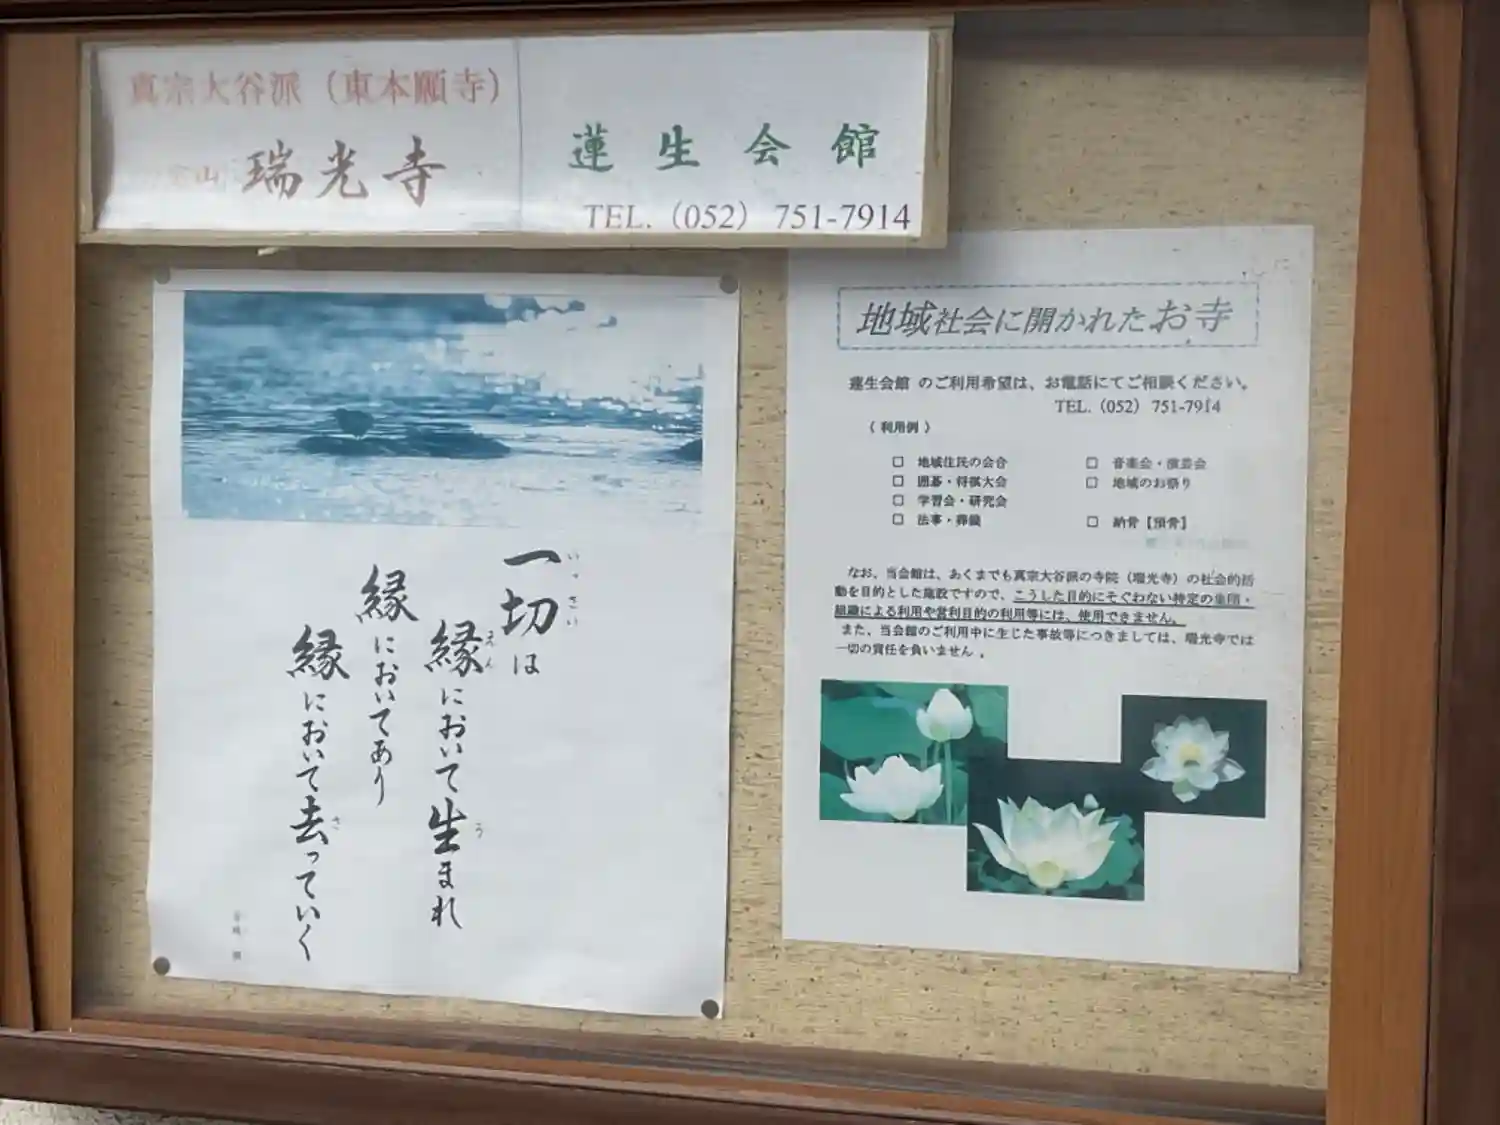 真宗大谷派（東本願寺）
山 瑞光寺
蓮生会館
TEL.（052）751-7914
一切は
いっさい
縁において生まれ
えん
う
縁においてあり
縁において去っていく
さ
地域社会に開かれたお寺
蓮生会館 のご利用希望は、お電話にてご相談ください。
TEL.（052）751-7914
〈 利用例 〉
□ 地域住民の会合
□ 囲碁・将棋大会
□ 学習会・研究会
□ 法事・葬儀
□ 音楽会・演芸会
□ 地域のお祭り
□ 納骨【預骨】
なお、当会館は、あくまでも真宗大谷派の寺院（瑞光寺）の社会的活
動を目的とした施設ですので、こうした目的にそぐわない特定の集団・
組織による利用や営利目的の利用等には、使用できません。
また、当会館のご利用中に生じた事故等につきましては、瑞光寺では
一切の責任を負いません。